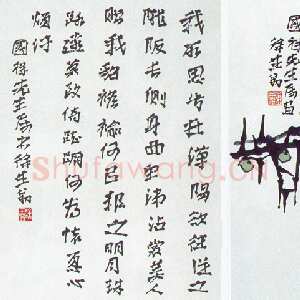 我所思兮在漢陽欲往從之
隴阪長側身西望涕沾裳美人
贈我貂襜褕何以報之明月珠
路遠莫致倚踟躕何為懷憂心
煩紆
國先生屬書徐生翁
先生屬
徐生翁
Shufawang.cn